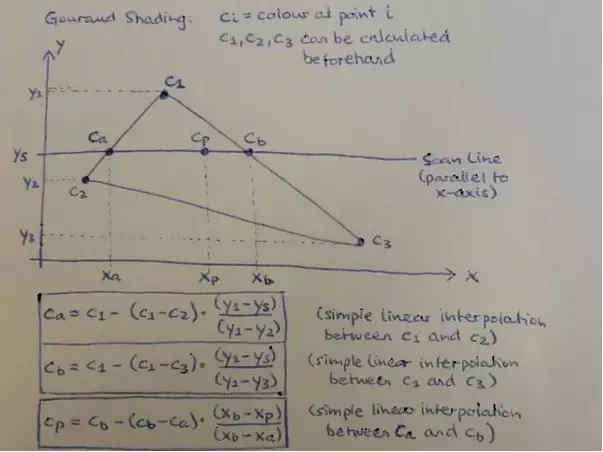 Gouraud Shading:
Ci = colour at point i
C1, C2, C3 can be calculated
beforehand
Y
C1
Y1
Ca
Cp
Cb
Ys
Scan Line
(parallel to
x-axis)
Y2
C2
Y3
C3
Xa
Xp
Xb
X
Ca = C1 - (C1-C2) · (Y1-Ys)/(Y1-Y2)
(simple linear interpolation
between C1 and C2)
Cb = C1 - (C1-C3) · (Y1-Ys)/(Y1-Y3)
(simple linear interpolation
between C1 and C3)
Cp = Cb - (Cb-Ca) · (Xb-Xp)/(Xb-Xa)
(simple linear interpolation
between Ca and Cb)